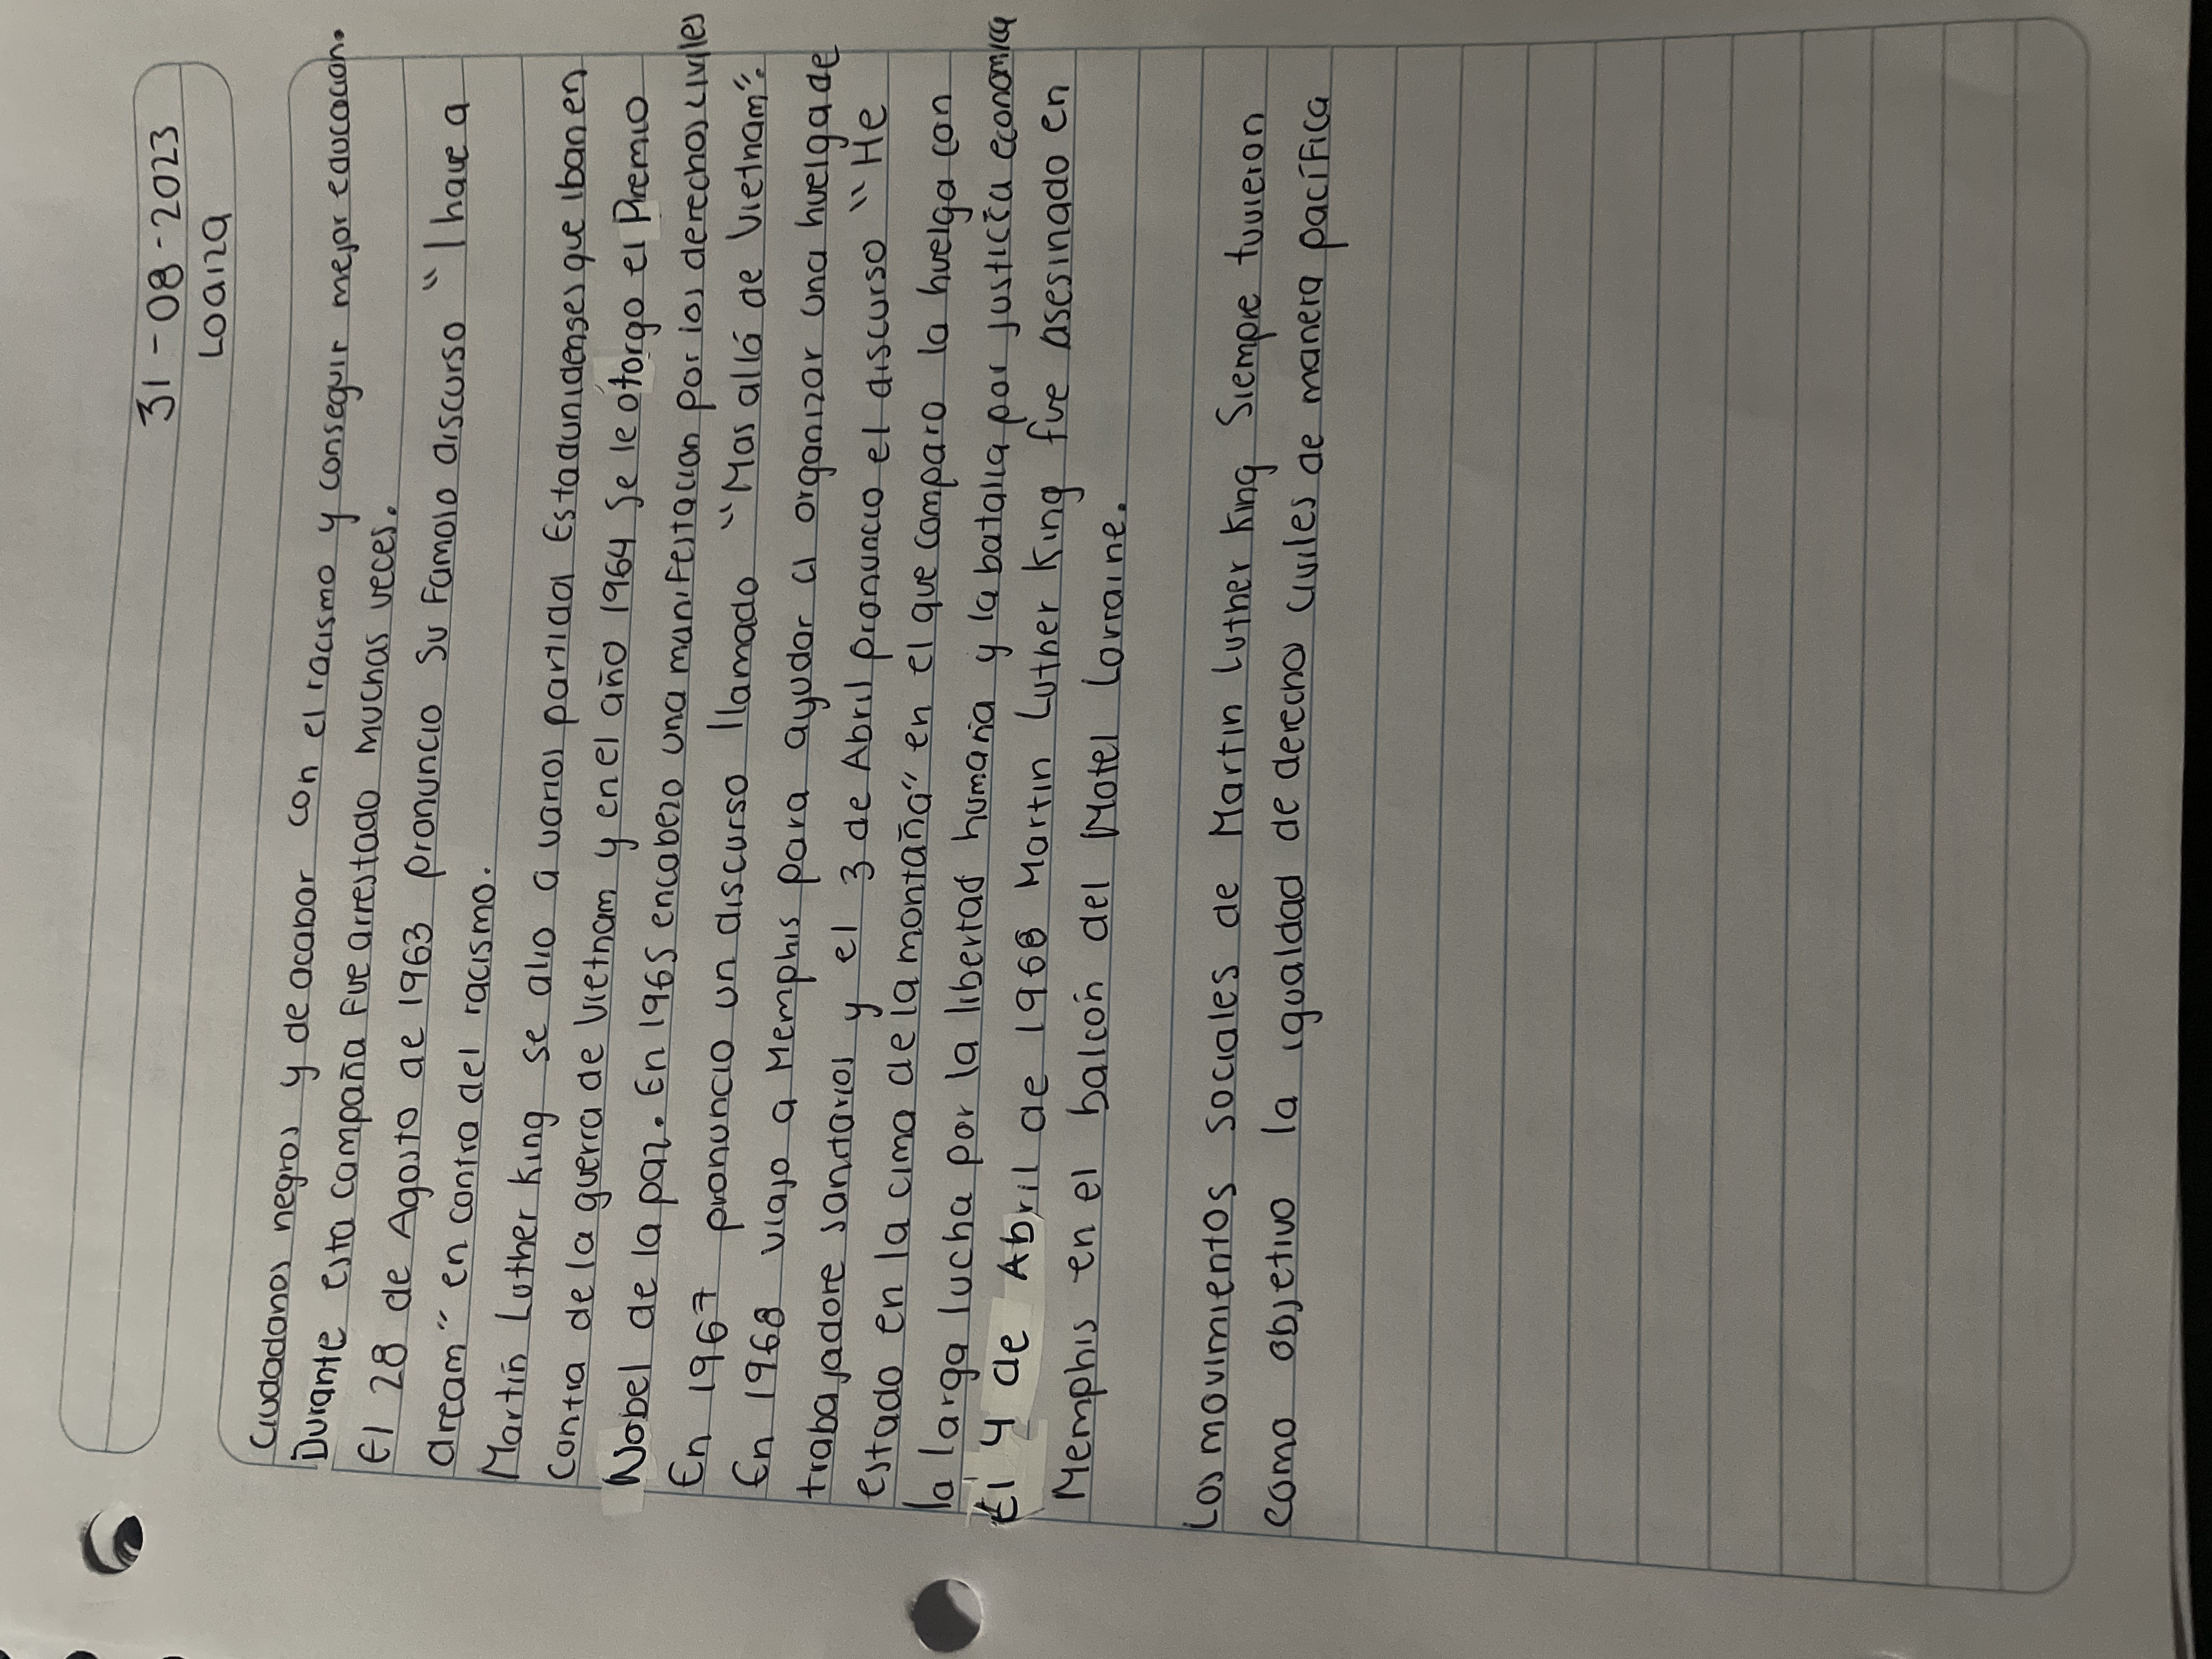 31-08-2023
Loaiza
Ciudadanos negros y de acabar con el racismo y conseguir mejor educacion.
Durante esta campaña fue arrestado muchas veces.
El 28 de Agosto de 1963 pronuncio su famoso discurso "I have a
dream" en contra del racismo.
Martin Luther King se alio a varios partidos Estadunidenses que iban en
contra de la guerra de Vietnam y en el año 1964 se le otorgo el Premio
Nobel de la paz. En 1965 encabezo una manifestacion por los derechos civiles
En 1967 pronuncio un discurso llamado "Mas allá de Vietnam".
En 1968 viajo a Memphis para ayudar a organizar una huelga de
trabajadore sanitarios y el 3 de Abril pronuncio el discurso "He
estado en la cima de la montaña" en el que comparo la huelga con
la larga lucha por la libertad humana y la batalla por justicia economica
El 4 de Abril de 1968 Martin Luther King fue asesinado en
Memphis en el balcón del Motel Lorraine.
Los movimientos sociales de Martin Luther King Siempre tuvieron
como objetivo la igualdad de derechos civiles de manera pacífica